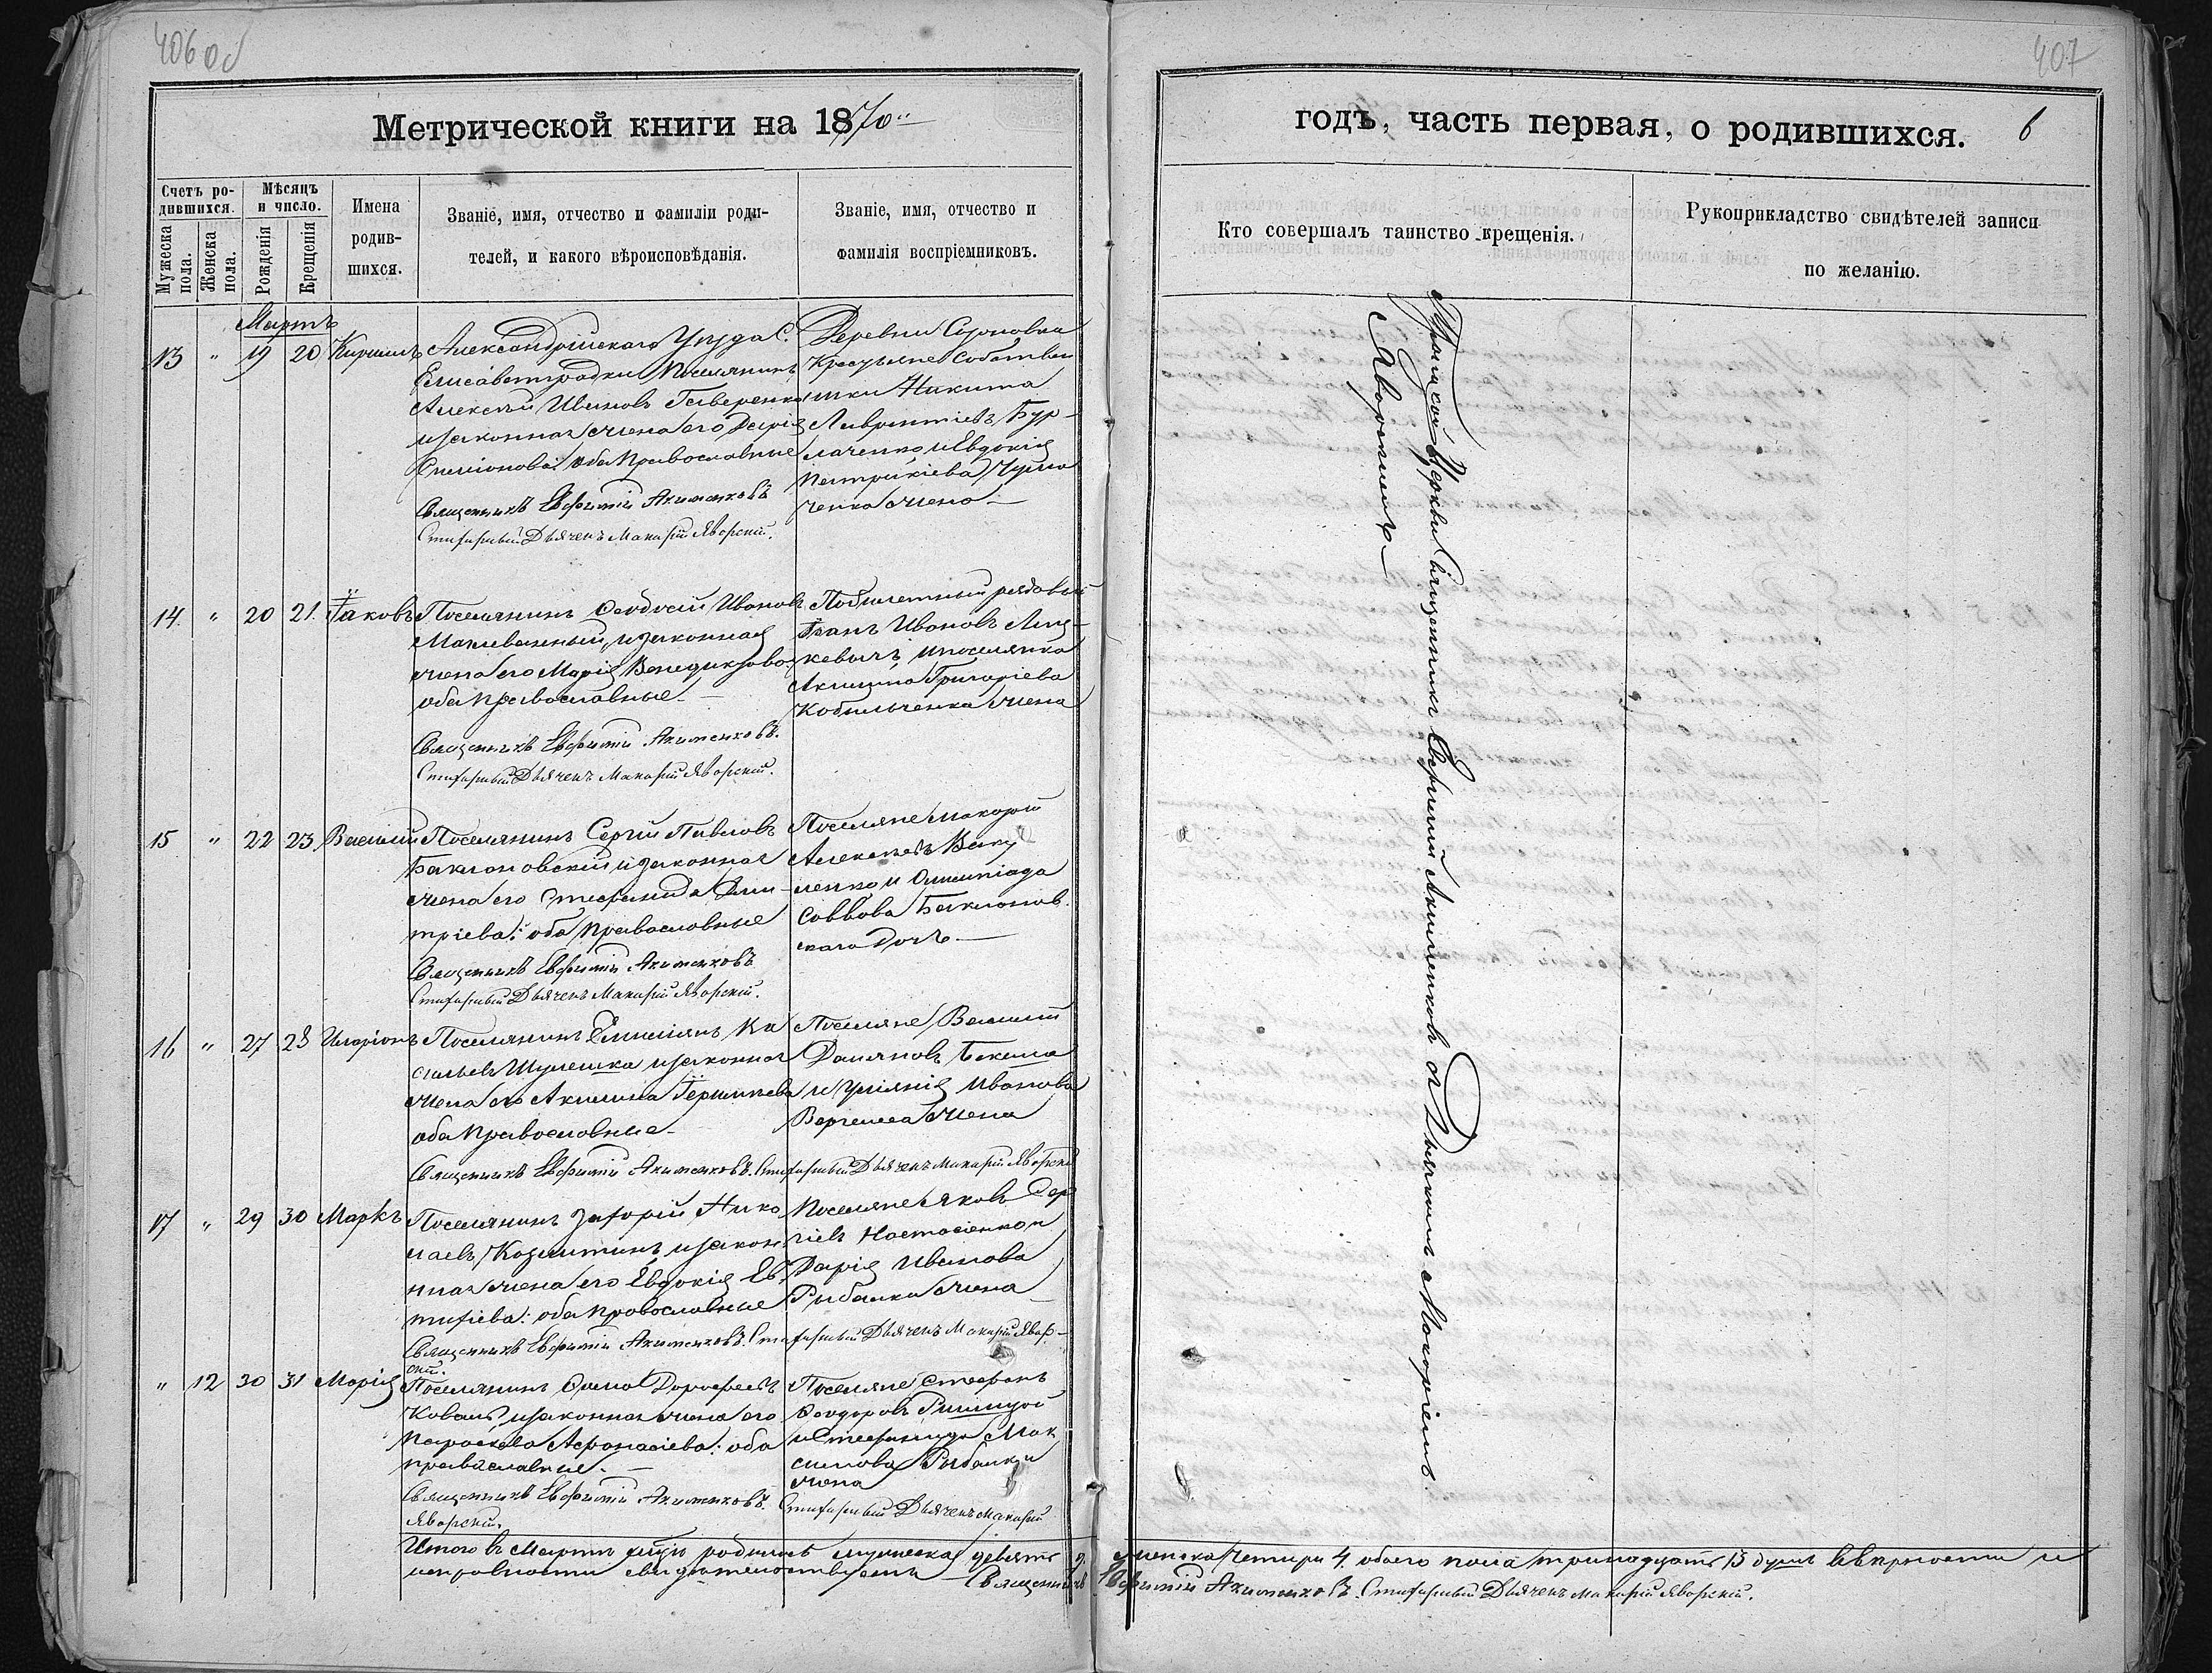 406 об
407
Метрической книги на 1870
годъ, часть первая, о родившихся.
6
Счетъ ро-
дившихся.
Мужеска
пола.
Женска
пола.
Мѣсяцъ
и число.
Рожденія
Крещенія
Имена
родив-
шихся.
Званіе, имя, отчество и фамиліи роди-
телей, и какого вѣроисповѣданія.
Званіе, имя, отчество и
фамилія воспріемниковъ.
Кто совершалъ таинство крещенія.
Рукоприкладство свидѣтелей записи
по желанію.
Мартъ
13 " 19 20 Кириллъ
Александрійскаго Уѣзда С.
Елисаветградки Поселянинъ
Алексѣй Ивановъ Гавренко
и законная жена его Дарія
Симіонова: оба Православные
Священникъ Евфимій Акименковъ
Стихарный Дьячекъ Макарій Яворскій.
Деревни
Крестьяне Собствен
ники Никита
Лаврентіевъ Бур-
лаченко и Евдокія
Патрикіева
ченка жена
14. " 20 21. Іаковъ
Поселянинъ Ѳеодосій Ивановъ
и законная
жена его Марія Венедиктова:
оба православные
Священникъ Евфимій Акименковъ.
Стихарный Дьячекъ Макарій Яворскій.
рядовый
Ивановъ
кевичъ, и поселянка
Акилина Григоріева
Кобильченка жена
15 " 22 23 Василій
Поселянинъ Сергій Павловъ
Баклановскій и законная
жена его Стефанида Дми-
тріева: оба Православные
Священникъ Евфимій Акименковъ
Стихарный Дьячекъ Макарій Яворскій.
Поселяне Макарій
Алексѣевъ Ваку
ленко и Олимпіада
Саввова Баклонов
скаго дочь
16 " 27 28 Иларіонъ
Поселянинъ Емиліянъ Ва
сильевъ Шулешка и законная
жена его Акилина
оба Православные
Священникъ Евфимій Акименковъ. Стихарный Дьячекъ Макарій Яворскій
Поселяне Василій
Даміановъ Бекела
и Уліянія Иванова
жена
17 " 29 30 Маркъ
Поселянинъ Захарій Нико
лаевъ и закон
ная жена его Евдокія Ев
тихіева: оба православные
Священникъ Евфимій Акименковъ. Стихарный Дьячекъ Макарій Явор-
скій.
Поселяне Яковъ Сер
гіевъ Настасіенко и
Дарія Иванова
Рыбалки жена
" 12 30 31 Марія
Поселянинъ Ѳома Дороѳеевъ
Коваль, и законная жена его
Параскева Аѳанасіева: оба
православные.
Священникъ Евфимій Акименковъ. Стихарный Дьячекъ Макарій
Яворскій.
Поселяне Стефанъ
Ѳеодоровъ
и Стефанида Мак
симова Рыбалки
жена
Приходской Церкви Священникъ Евфимій Акименковъ съ Дьячкомъ Макаріемъ
Яворскимъ
Итого въ Мартѣ мцѣ родилось мужеска девять 9. женска четыри 4. обоего пола тринадцать 13 душъ въ вѣрности и
исправности свидѣтельствуемъ Священникъ Евфимій Акименковъ. Стихарный Дьячекъ Макарій Яворскій.